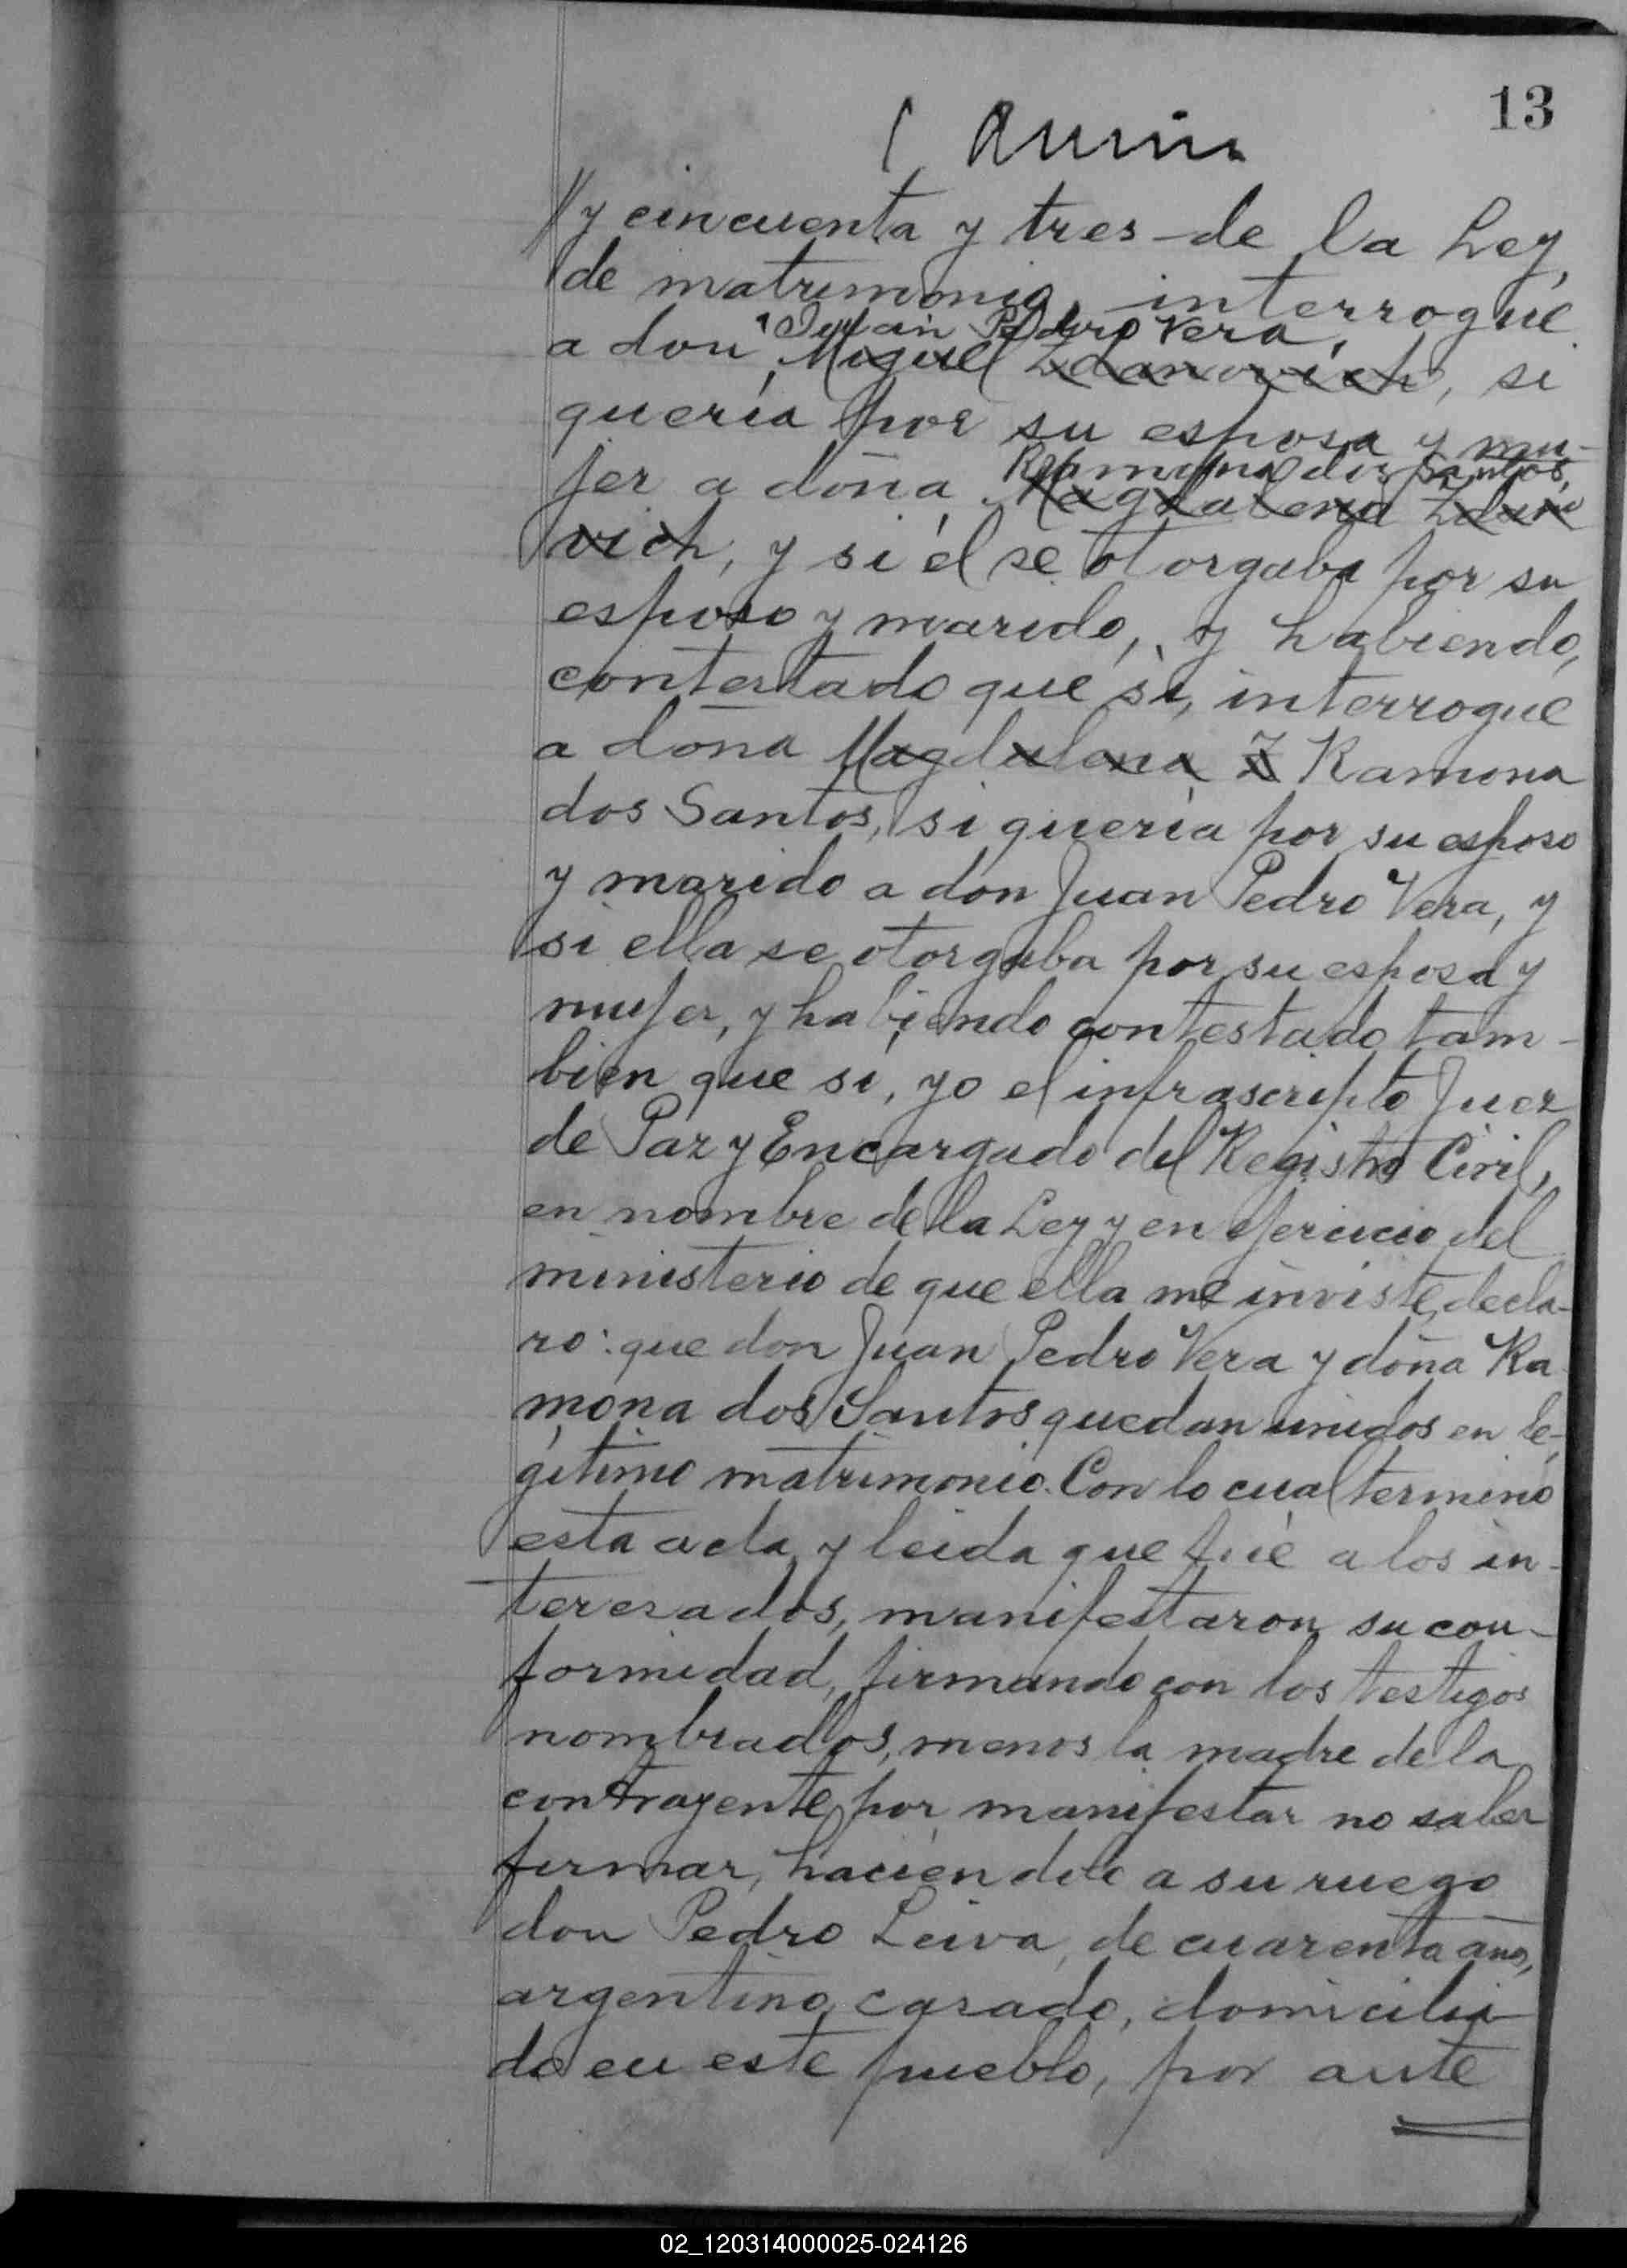 13
//y cincuenta y tres de la Ley,
de matrimonio, interrogué
Juan Pedro Vera,
a don Miguel Zdanovich, si
quería por su esposa y mu-
Ramona dos Santos,
jer a doña Magdalena Zdano
vich, y si él se otorgaba por su
esposo y marido, y habiendo,
contestado que sì, interrogue
a doña Magdalena Z Ramona
dos Santos, si quería por su esposo
y marido a don Juan Pedro Vera, y
si ella se otorgaba por su esposa y
mujer, y habiendo contestado tam-
bien que si, yo el infrascripto Juez
de Paz y Encargado del Registro Civil,
en nombre de la Ley y en ejercicio del
ministerio de que ella me inviste, decla-
ro: que don Juan Pedro Vera y doña Ra
mona dos Santos quedan unidos en le-
gitimo matrimonio. Con lo cual terminó
esta acta, y leida que fué a los in-
teresados, manifestaron su con-
formidad, firmando con los testigos
nombrados, menos la madre de la
contrayente por manifestar no saber
firmar, haciendolo a su ruego
don Pedro Leiva, de cuarenta años,
argentino, casado, domicilia
do en este pueblo, por ante
02_120314000025-024126